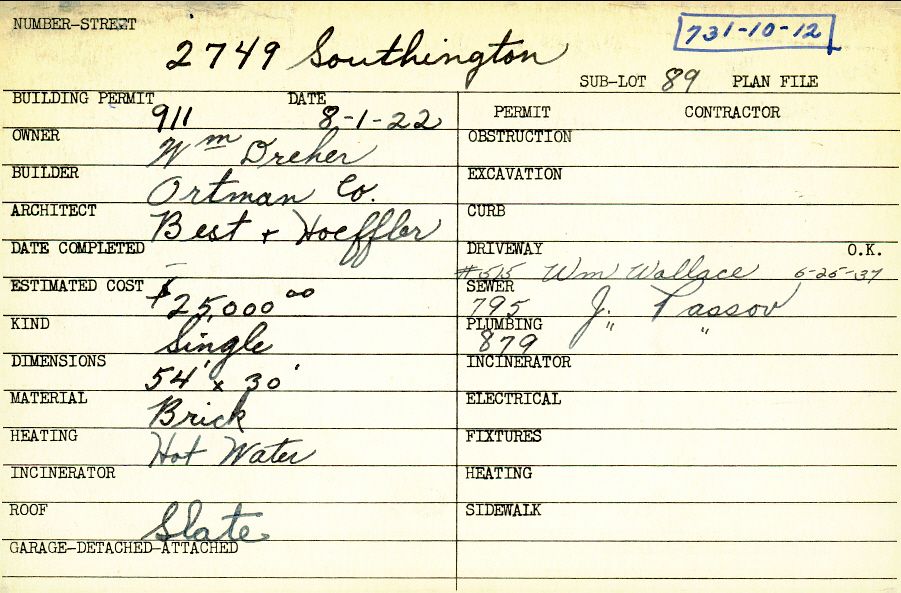 NUMBER-STREET
2749 Southington
731-10-12
SUB-LOT 89 PLAN FILE
BUILDING PERMIT 911 DATE 8-1-22
OWNER Wm Dreher
BUILDER Ortman Co.
ARCHITECT Best + Hoeffler
DATE COMPLETED
ESTIMATED COST $25,000 00
KIND Single
DIMENSIONS 54' x 30'
MATERIAL Brick
HEATING Hot Water
INCINERATOR
ROOF Slate
GARAGE-DETACHED-ATTACHED
PERMIT CONTRACTOR
OBSTRUCTION
EXCAVATION
CURB
DRIVEWAY O.K.
#515 Wm Wallace 6-25-37
SEWER 795 J. Passov
PLUMBING 879 " "
INCINERATOR
ELECTRICAL
FIXTURES
HEATING
SIDEWALK